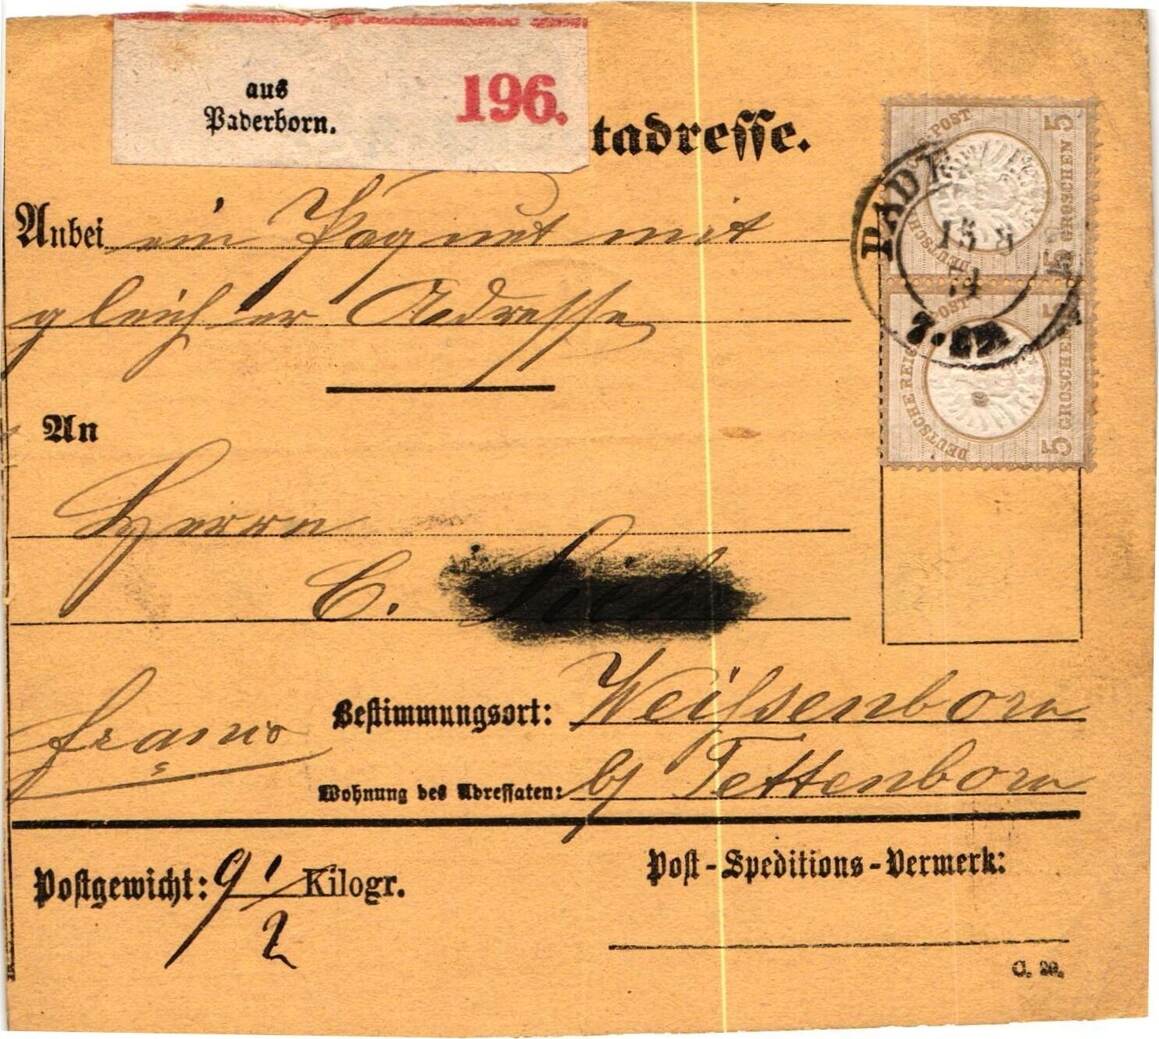 aus
Paderborn.
196.
tadresse.
Anbei ein Paquet mit
gleicher Adresse
An
Herrn
C.
franco
Bestimmungsort: Weißenborn
Wohnung des Adressaten: b/ Tettenborn
Postgewicht: 9 1/2 Kilogr.
Post-Speditions-Vermerk:
C. 20.
POST
5 GROSCHEN 5
DEUTSCHE
PAD
15 8
74
7-8N
DEUTSCHE REICHS POST
5 GROSCHEN 5